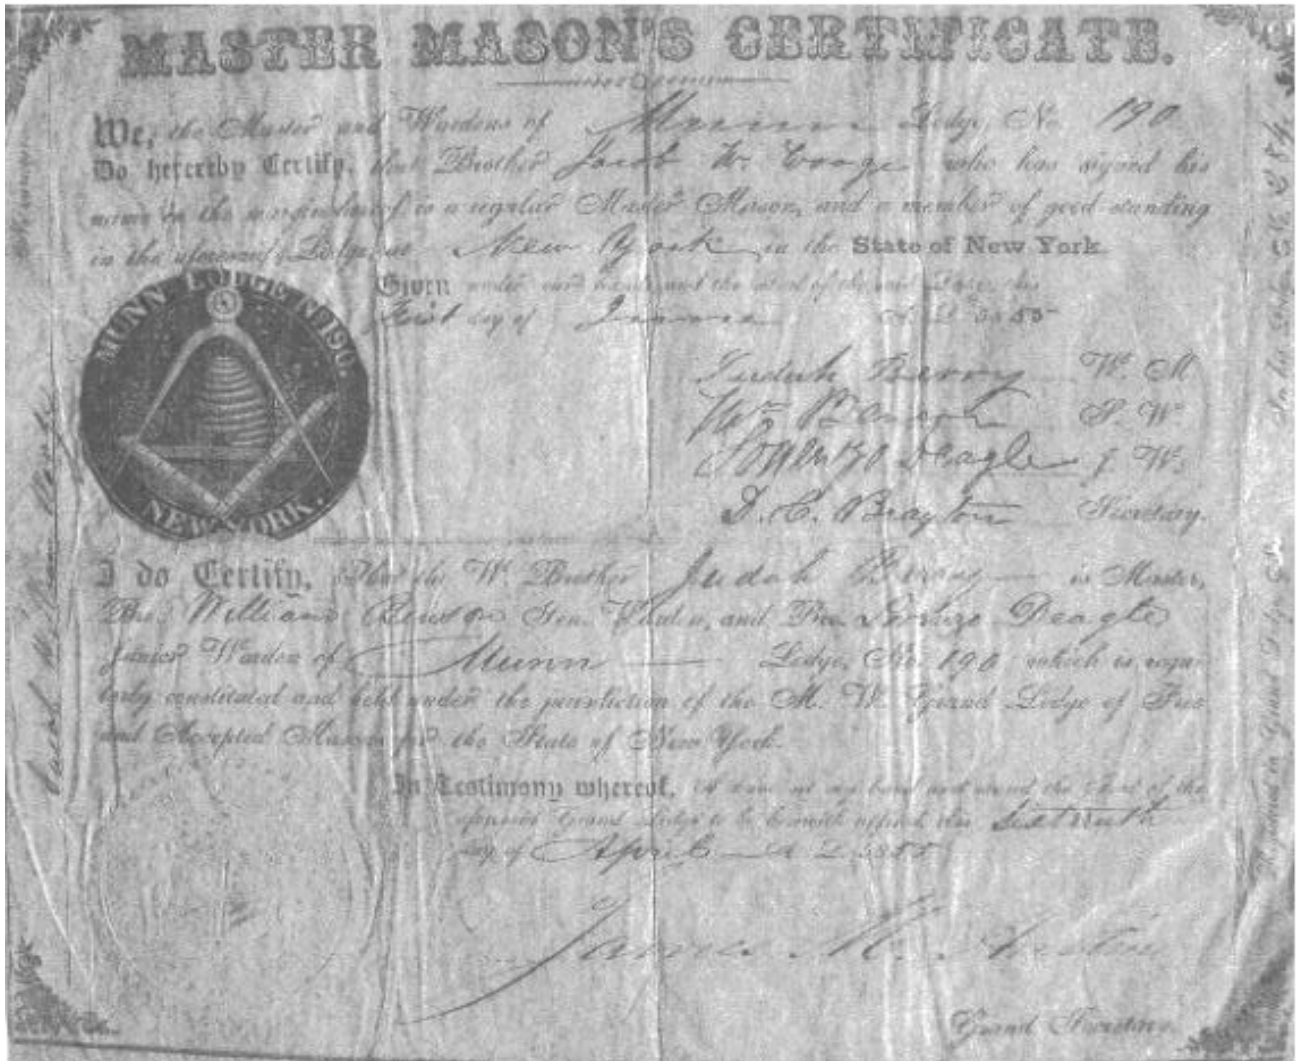 MASTER MASON'S CERTIFICATE.
We, the Master and Wardens of Munn Lodge, No. 190
Do herereby Certify, that Brother Jacob W. who has signed his
name in the margin hereof is a regular Master Mason, and a member of good standing
in the aforesaid Lodge, at New York in the State of New York
Given under our hands and the Seal of the said Lodge, this
First day of A. L. 5855
MUNN LODGE No. 190.
NEW YORK.
Judah Berry W. M
Wm S. W.
Lorenzo Deagle J. W.
D. C. Brayton Secretary.
I do Certify, That the W. Brother Judah Berry is Master,
Bro. William Sen. Warden, and Bro. Lorenzo Deagle
Junior Warden of Munn Lodge, No. 190 which is regu-
larly constituted and held under the jurisdiction of the M. W. Grand Lodge of Free
and Accepted Masons for the State of New York.
In Testimony whereof, I have set my hand and caused the Seal of the
aforesaid Grand Lodge to be herewith affixed, this sixteenth
day of April A. L. 5855
James M. Austin
Grand Secretary.
Registered in Grand Lodge